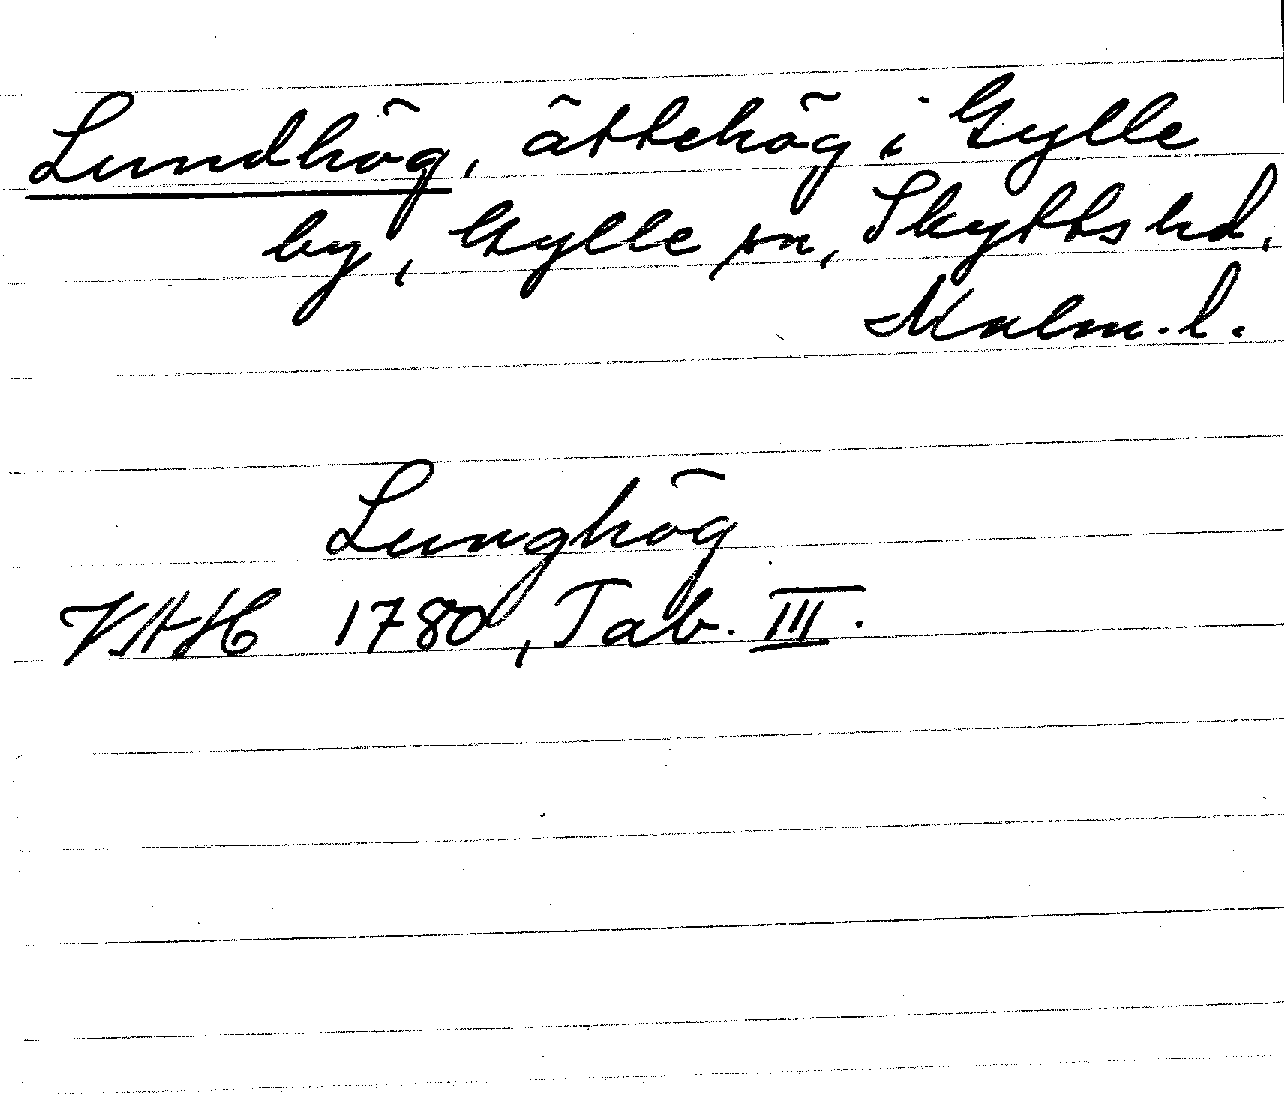 Lundhög, ättehög i Gylle
by, Gylle sn, Skytts hd,
Malm. l.
Lunghög
VAH 1780, Tab. III.